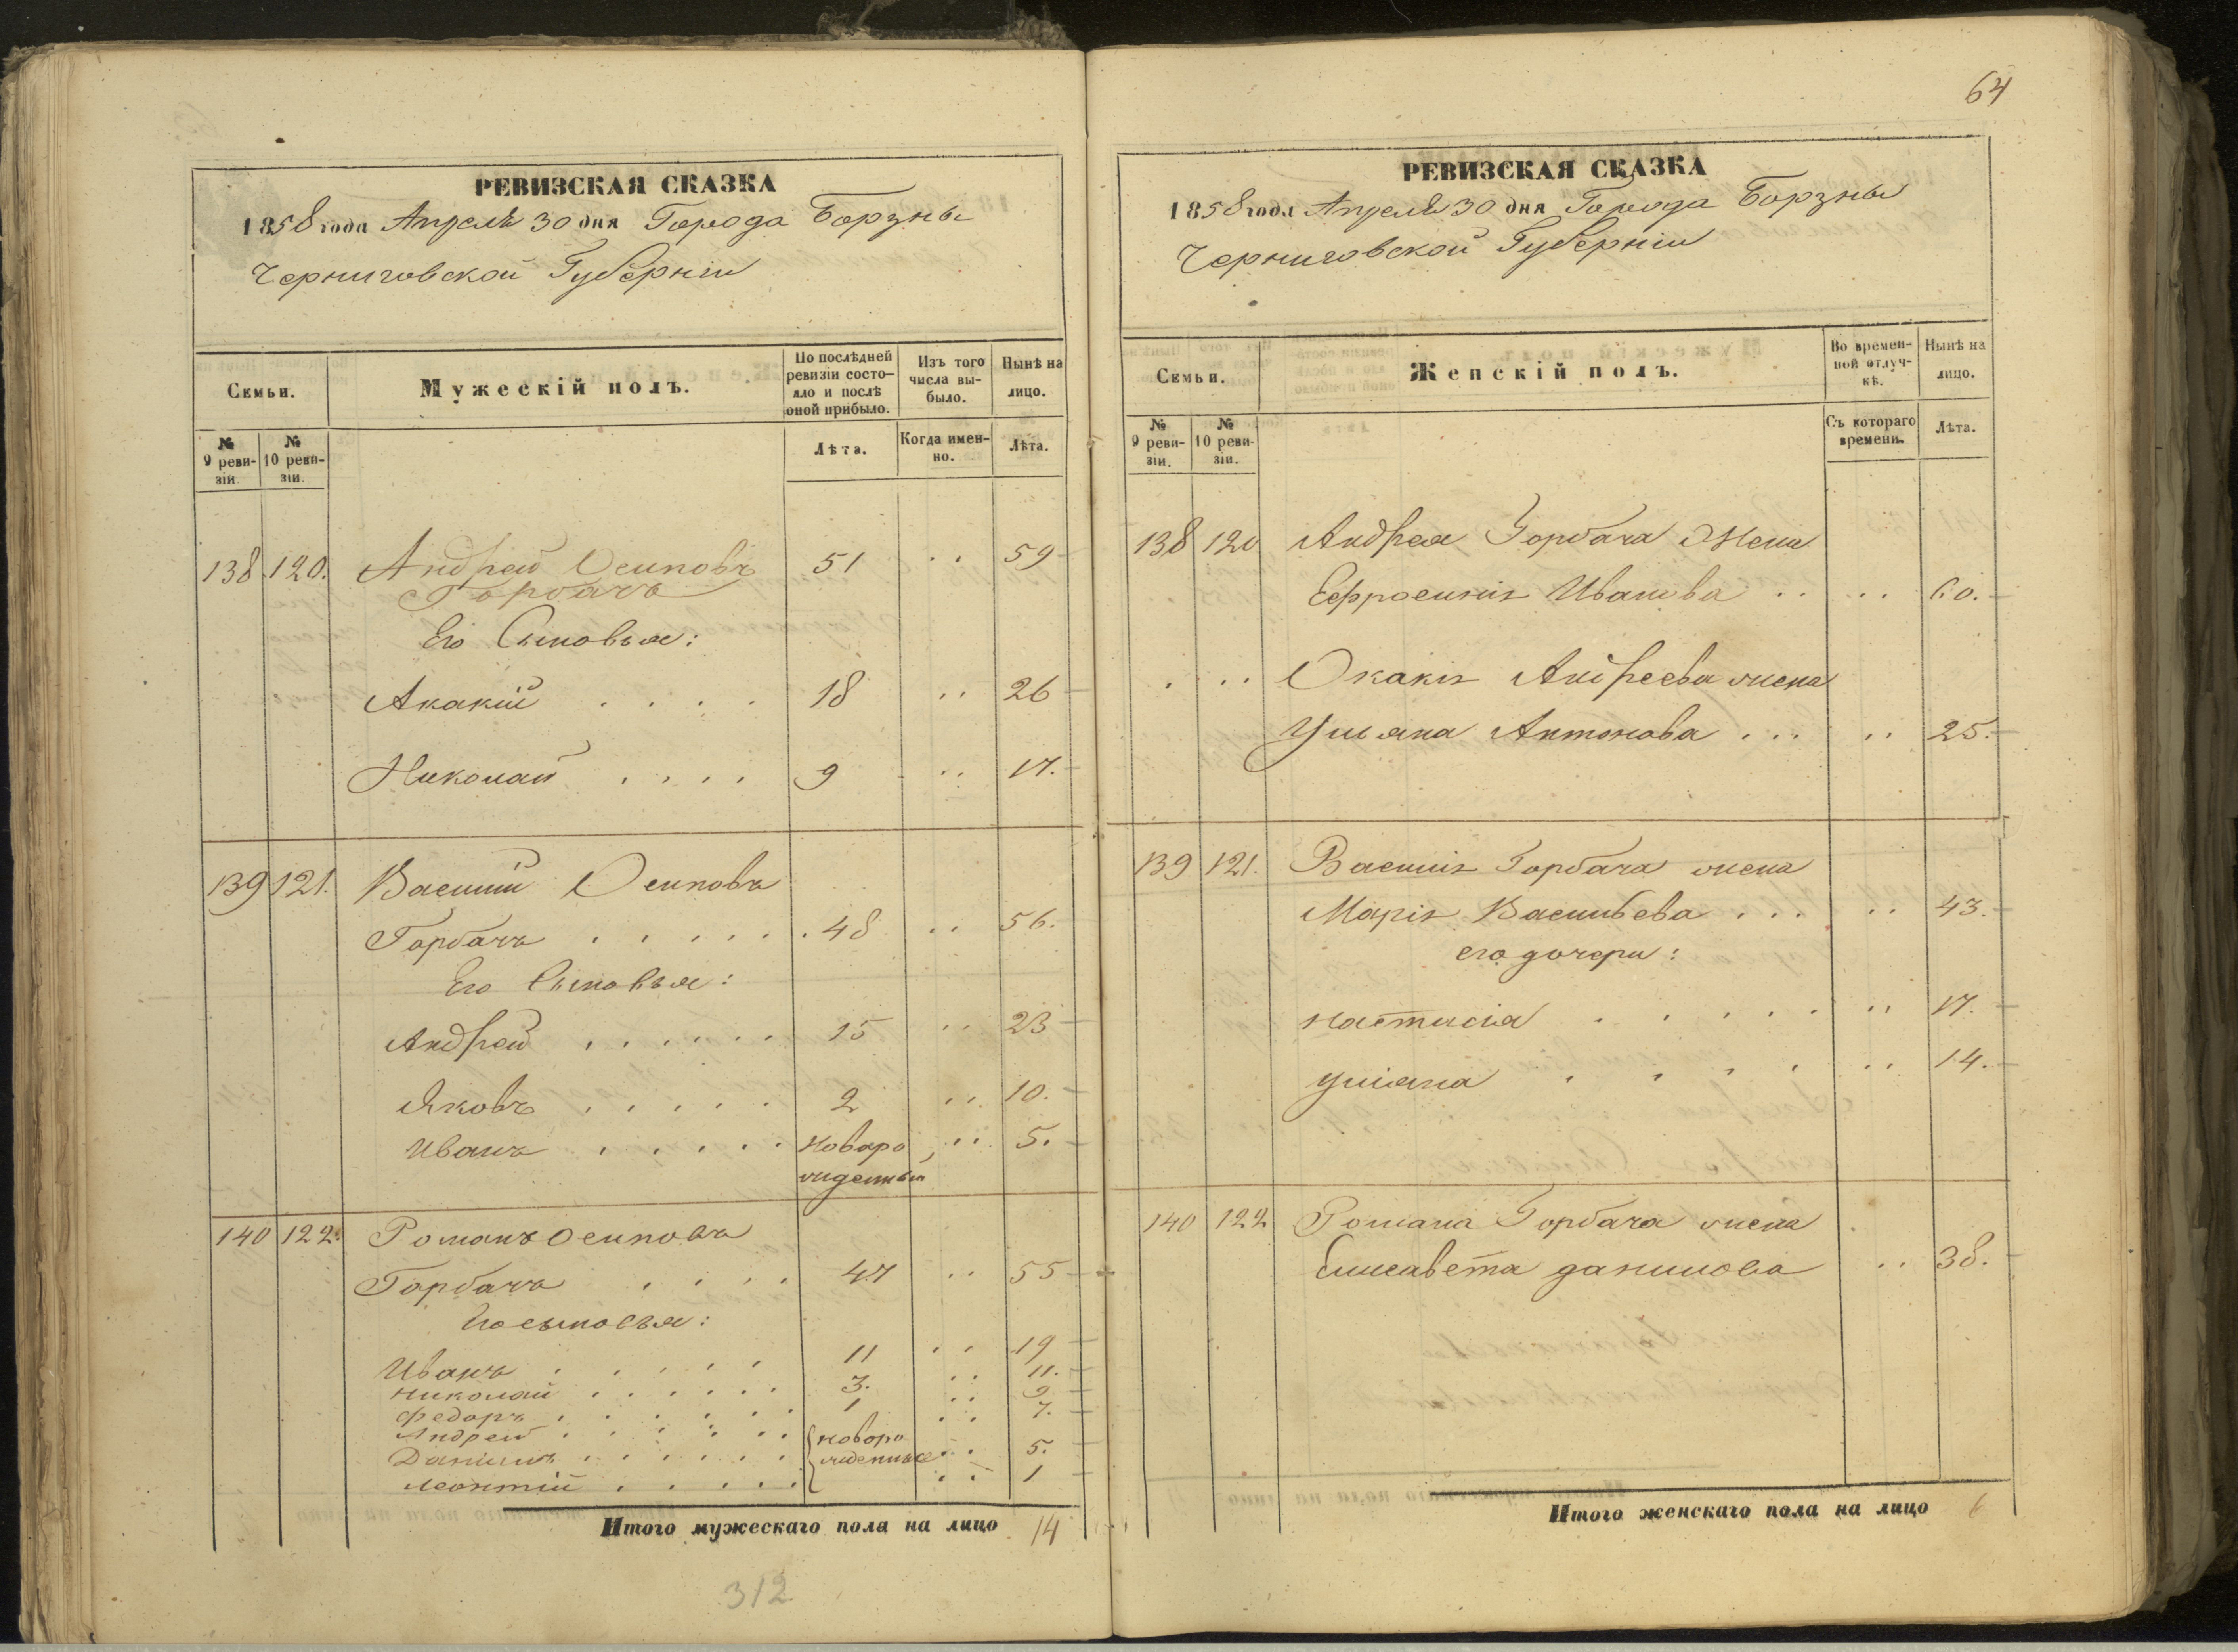 РЕВИЗСКАЯ СКАЗКА
1858 года Апреля 30 дня Города Борзны
Черниговской Губерніи
Семьи.
Мужескій полъ.
По послѣдней
ревизіи состо-
яло и послѣ
оной прибыло.
Изъ того
числа вы-
было.
Нынѣ на
лицо.
№
9 реви-
зіи.
№
10 реви-
зіи.
Лѣта.
Когда имен-
но.
Лѣта.
138 120. Андрей Осиповъ 51 .. 59
Горбачъ
Его Сыновья:
Акакій . . . . 18 .. 26
Николай . . . . 9 .. 17.
139 121. Василій Осиповъ
Горбачъ . . . . . . 48 .. 56.
Его Сыновья:
Андрей . . . . . . 15 .. 23
Яковъ . . . . . 2 .. 10.
Иванъ . . . . . Новоро .. 5.
жденный
140 122. Романъ Осиповъ
Горбачъ . . . . 47 .. 55
Его сыновья:
Иванъ . . . . . 11 .. 19
Николай . . . . . . 3. .. 11.
Федоръ . . . . . . 1 .. 9
Андрей . . . . . . новоро .. 7.
Даніилъ . . . . . . жденные .. 5.
Леонтій . . . . . .. 1
Итого мужескаго пола на лицо 14
312
64
РЕВИЗСКАЯ СКАЗКА
1858 года Апреля 30 дня Города Борзны
Черниговской Губерніи
Семьи.
Женскій полъ.
Во времен-
ной отлуч-
кѣ.
Нынѣ на
лицо.
№
9 реви-
зіи.
№
10 реви-
зіи.
Съ котораго
времени.
Лѣта.
138 120 Андрея Горбача Жена
Ефросинія Иванова .. .. 60.
. .. Окакія Андреева жена
Ульяна Антонова ... .. 25.
139 121. Василія Горбача жена
Марія Васильева ... .. 43.
его дочери:
Настасія . . . . . .. 17.
Уліяна . . . . .. 14.
140 122 Романа Горбача жена
Елисавета Данилова .. 38.
Итого женскаго пола на лицо 6